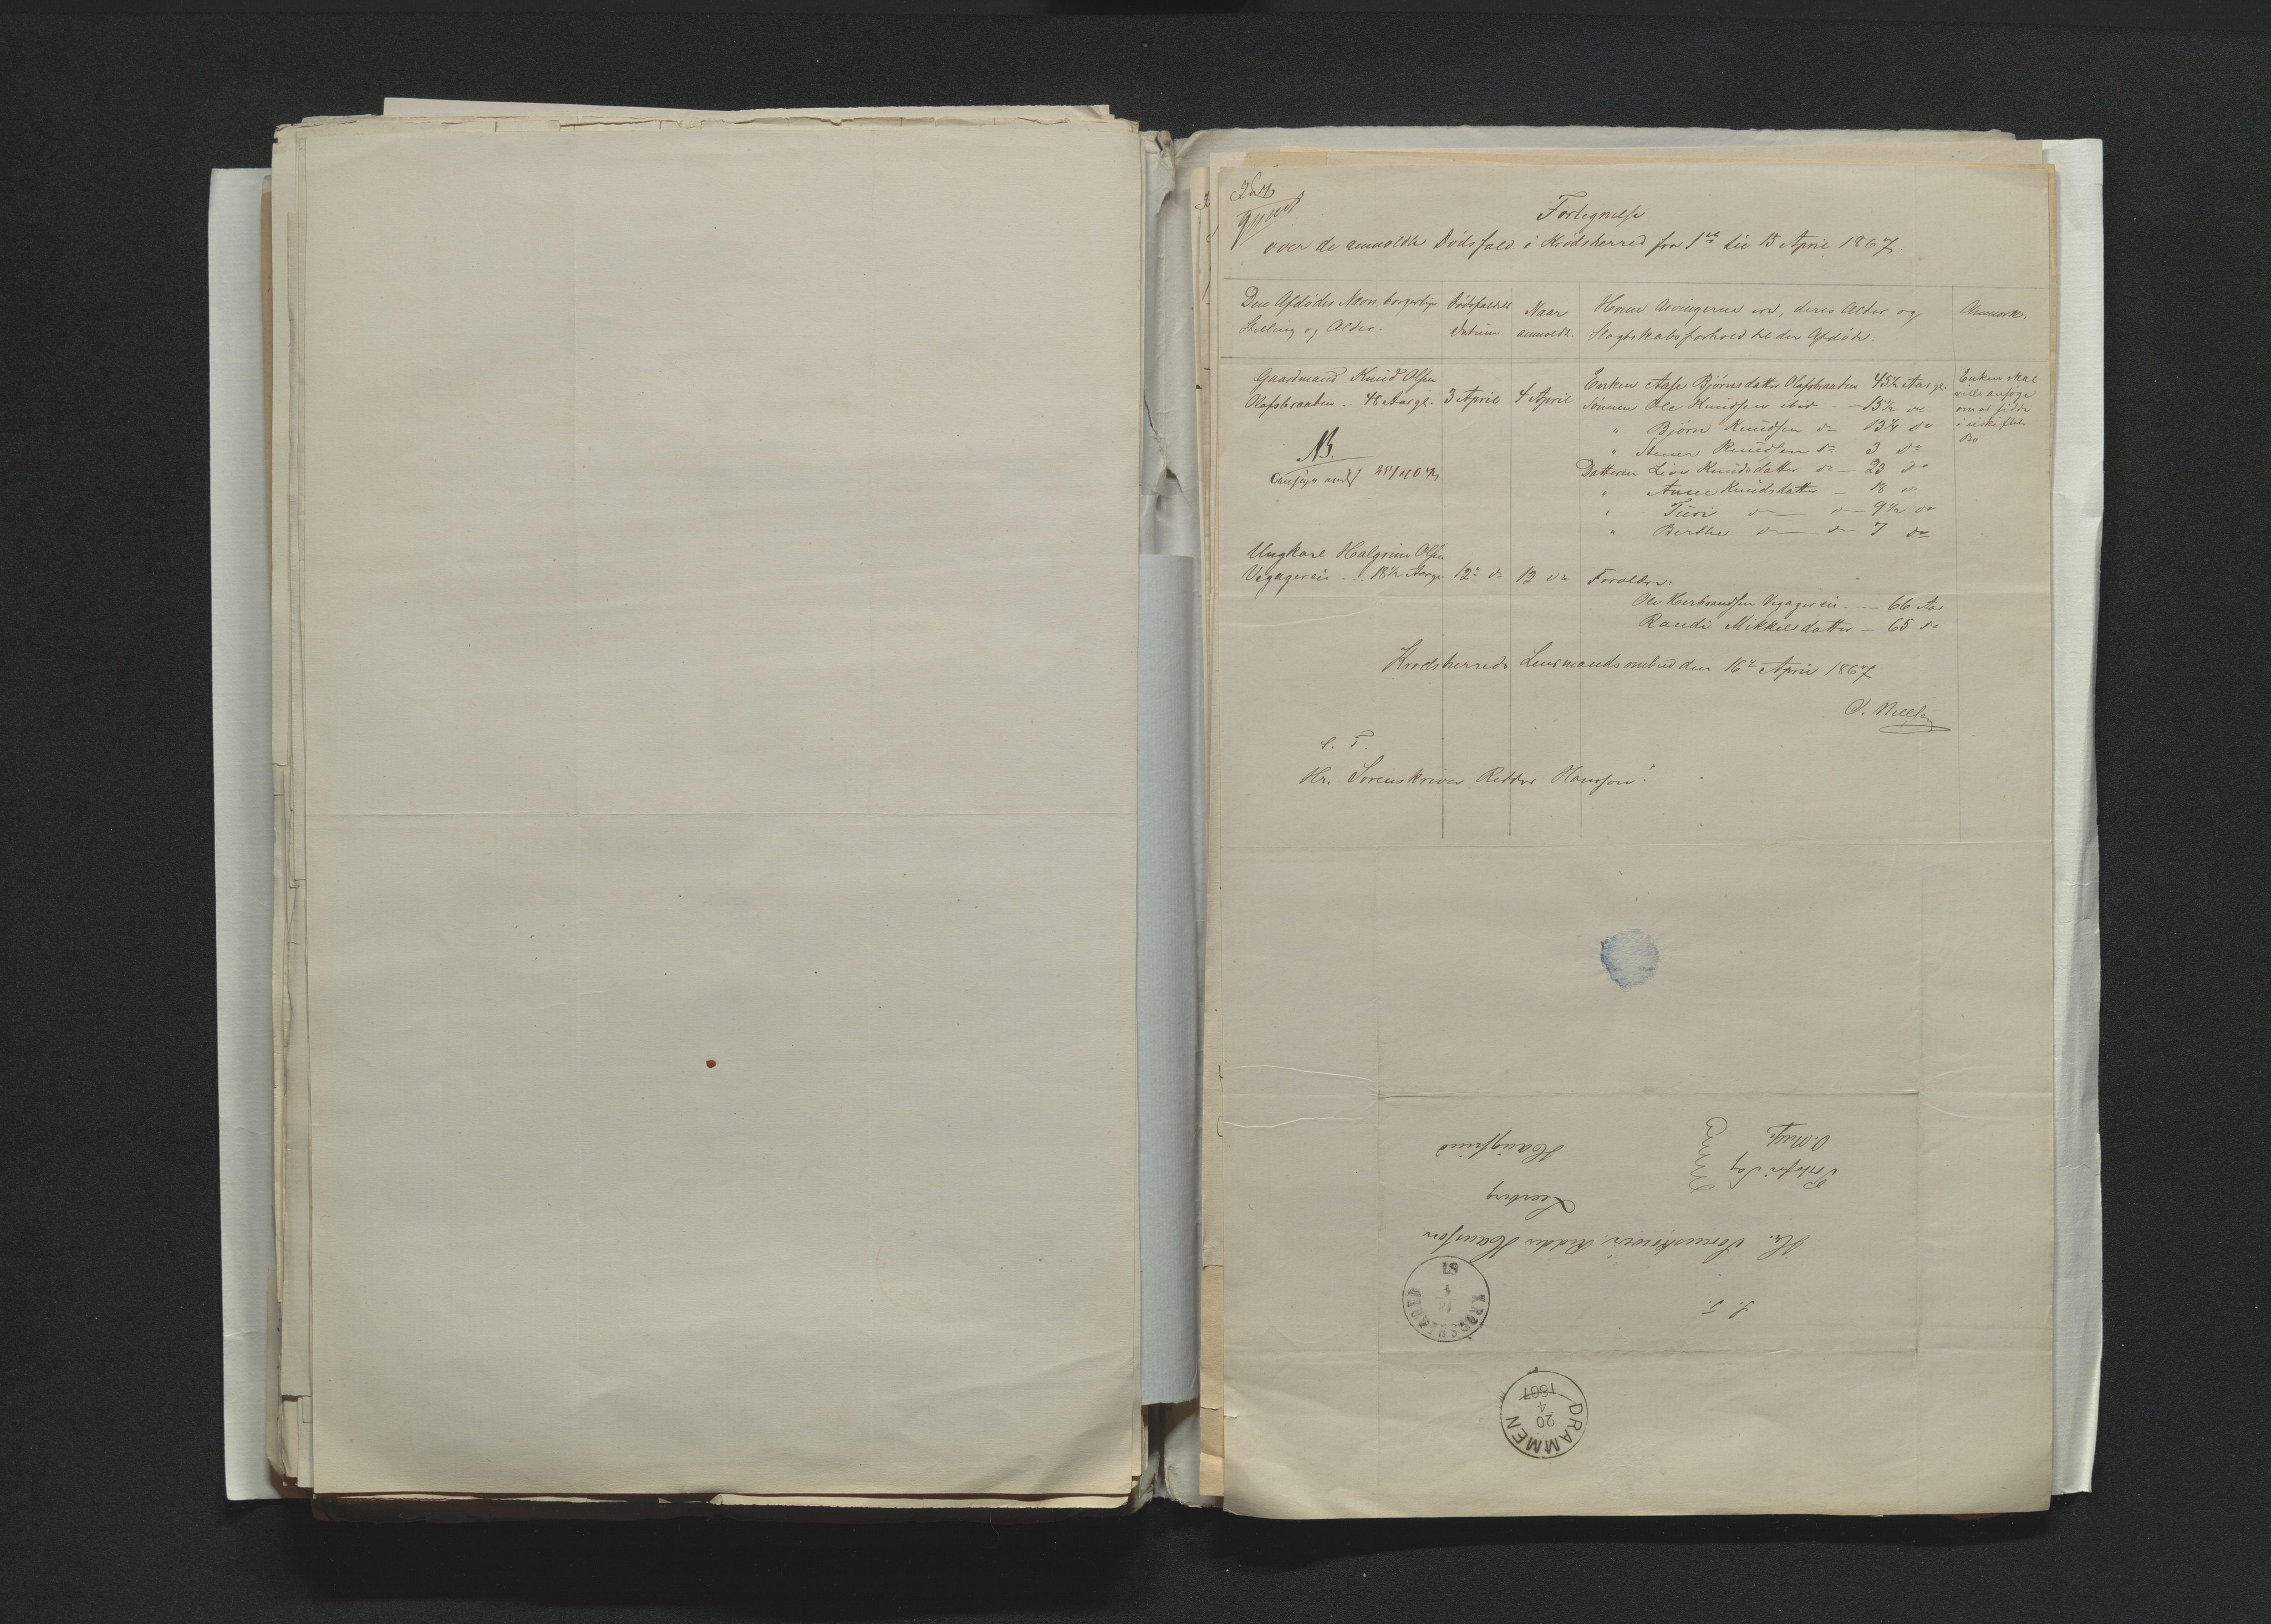 Fortegnelse
over de anmeldte Dødsfald i Krødsherred fra 1ste til 15 April 1867.
Den Afdødes Navn, borgerlige
Stilling og Alder.
Dødsfaldets
Datum
Naar
anmeldt.
Hvem Arvingerne ere, deres Alder og
Slægtskabsforhold til den Afdøde.
Anmærk.
Gaardmand Knud Olsen
Olafsbraaten .. 48 Aar gl.
3 April
4 April
Enken Aase Bjørnsdatter Olafsbraaten 45½ Aar gl.
Sønnen Ole Knudsen ibid - 15½ do
" Bjørn Knudsen do 13¼ do
" Stener Knudsen do 3 do
Datteren Livi Knudsdatter do - 23 do
" Anne Knudsdatter - 18 do
" Turi do do - 9½ do
" Berthe do do 7 do
Enken skal
ville ansøge
om at sidde
i uskiftet
Bo
NB.
Ungkarl Halgrim Olsen
Vegagereie .. 18½ Aar gl.
12te do
12 do
Forældre:
Ole Herbrandsen Vegagereie - 66 Aar
Randi Mikkelsdatter - 65 do
Krødsherreds Lensmandsombud den 16de April 1867
S. T.
Hr. Sorenskriver Ridder Hansson!
S. T.
Hr. Sorenskriver, Ridder Hansson
Haugsund
KRØDSHERRED
DRAMMEN
20
4
1867